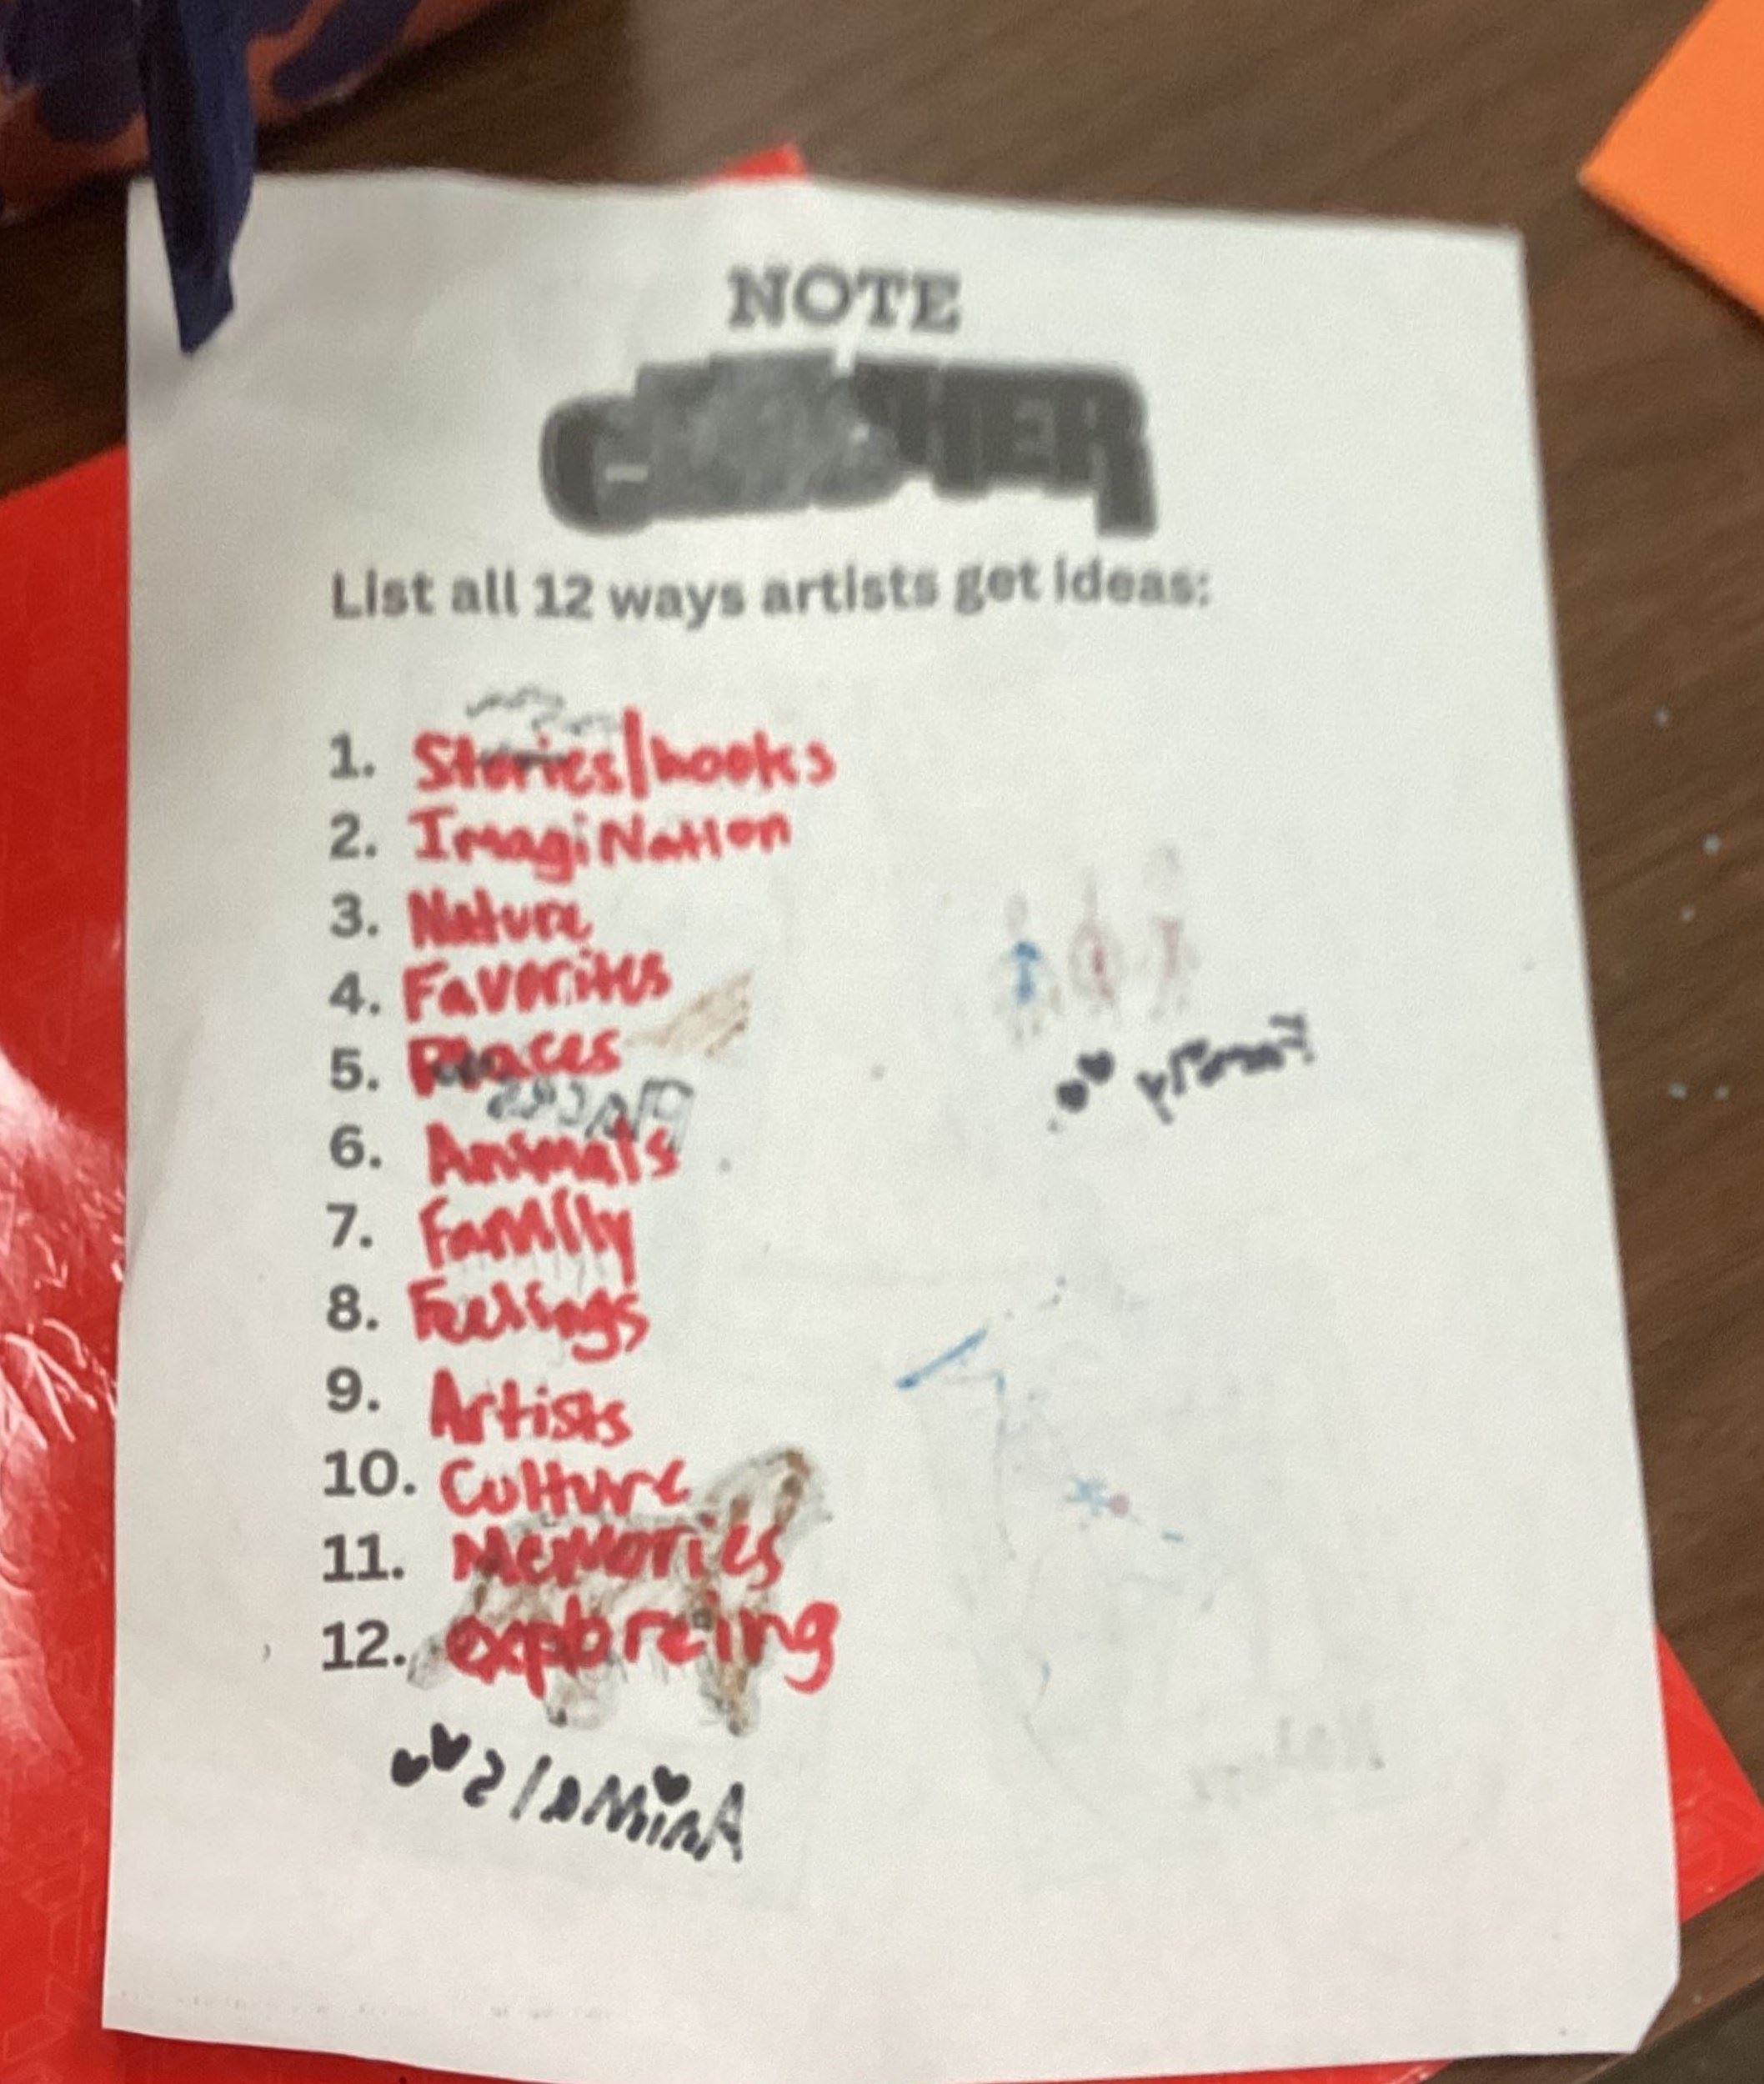 NOTE
List all 12 ways artists get ideas:
1. Stories/books
2. ImagiNation
3. Nature
4. Favorites
5. Places
Places
6. Animals
7. Family
Family
8. Feelings
9. Artists
10. Culture
11. Memories
12. exploreing
Animals